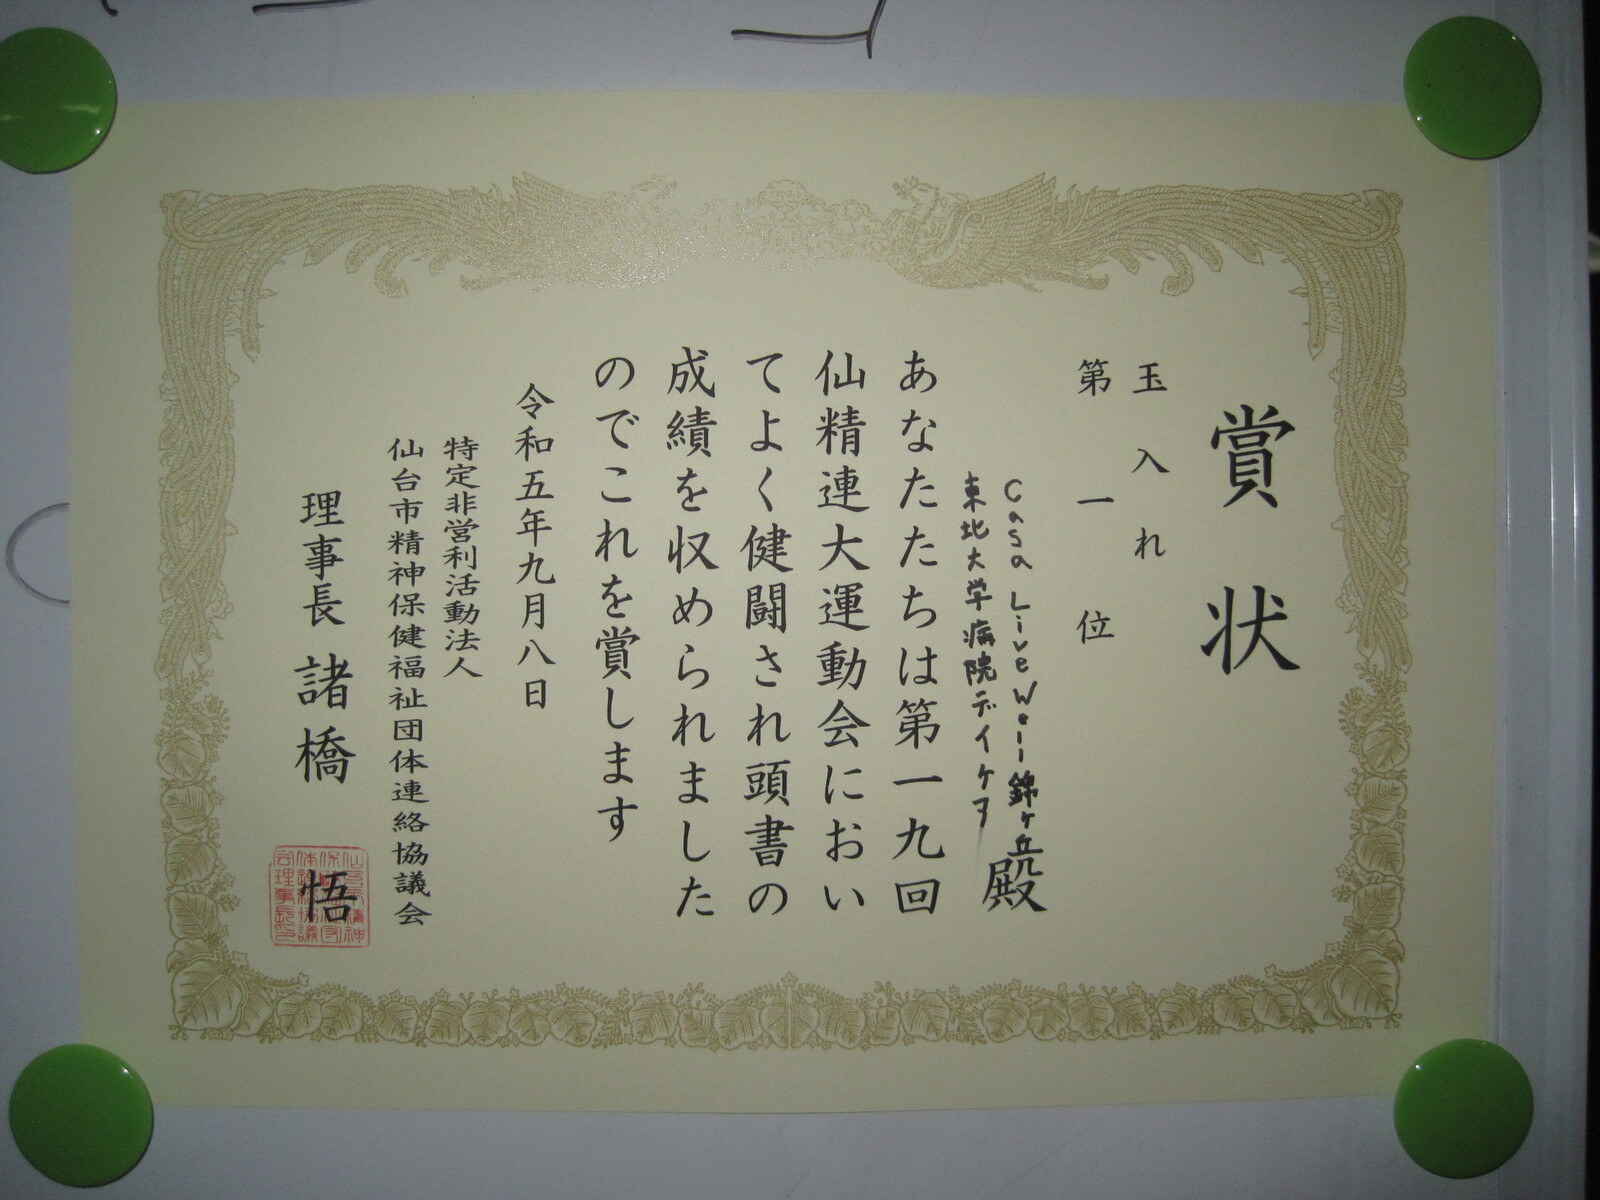 賞状
玉入れ
第一位
Casa Live Well 錦ヶ丘
東北大学病院デイケア
殿
あなたたちは第一九回
仙精連大運動会におい
てよく健闘され頭書の
成績を収められました
のでこれを賞します
令和五年九月八日
特定非営利活動法人
仙台市精神保健福祉団体連絡協議会
理事長 諸橋 悟